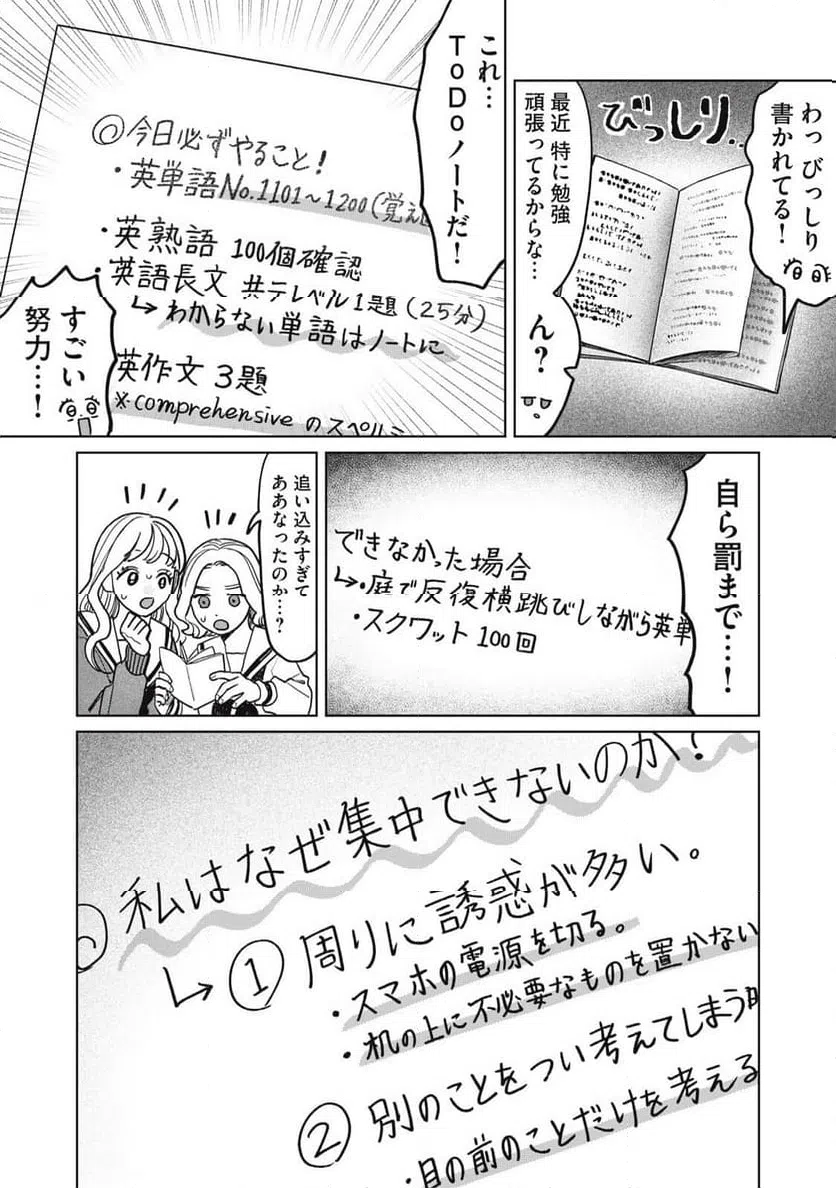 わっ びっしり
書かれてる！
びっしり‥
最近 特に勉強
頑張ってるからな…
ん？
これ…
ＴｏＤｏノートだ！
◎今日必ずやること！
・英単語No.1101～1200(覚え
・英熟語 100個確認
・英語長文 共テレベル1題(25分)
↳わからない単語はノートに
英作文 3題
※comprehensiveのスペルミ
すごい
努力…！
自ら罰まで…！
できなかった場合
↳・庭で反復横跳びしながら英単
・スクワット100回
追い込みすぎて
ああなったのか…？
私はなぜ集中できないのか？
↳①周りに誘惑が多い。
・スマホの電源を切る。
・机の上に不必要なものを置かない
②別のことをつい考えてしまう
・目の前のことだけを考える